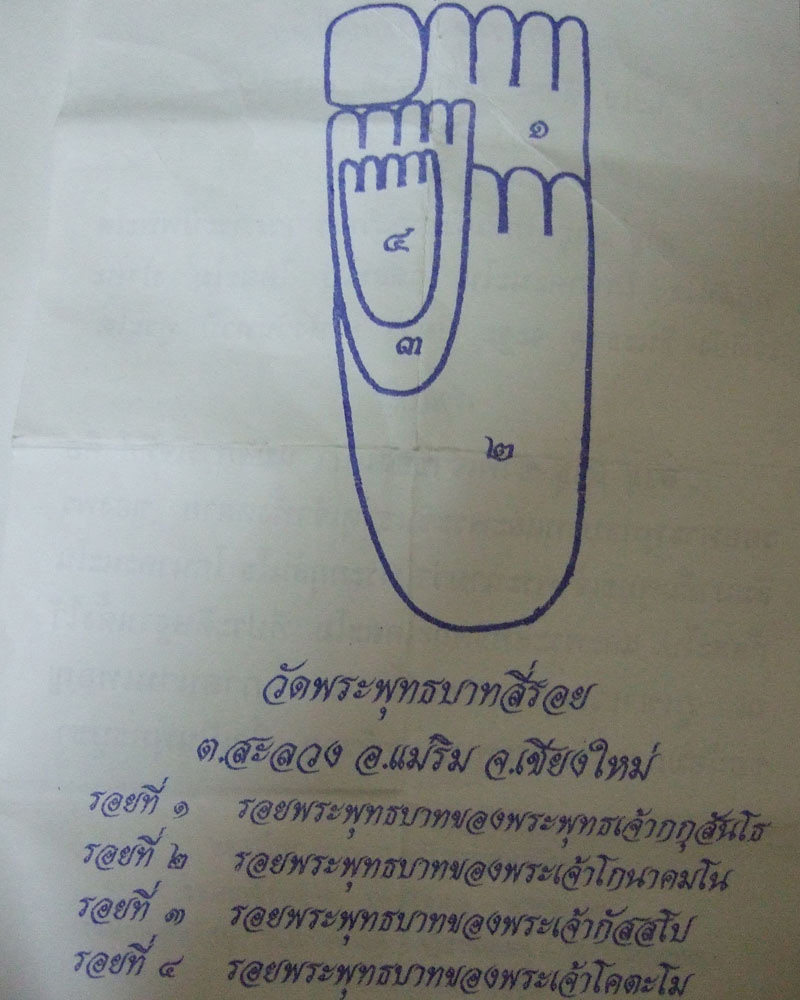 ๑
๔
๓
๒
วัดพระพุทธบาทสี่รอย
ต.สะลวง อ.แม่ริม จ.เชียงใหม่
รอยที่ ๑ รอยพระพุทธบาทของพระพุทธเจ้ากกุสันโธ
รอยที่ ๒ รอยพระพุทธบาทของพระเจ้าโกนาคมโน
รอยที่ ๓ รอยพระพุทธบาทของพระเจ้ากัสสโป
รอยที่ ๔ รอยพระพุทธบาทของพระเจ้าโคตะโม